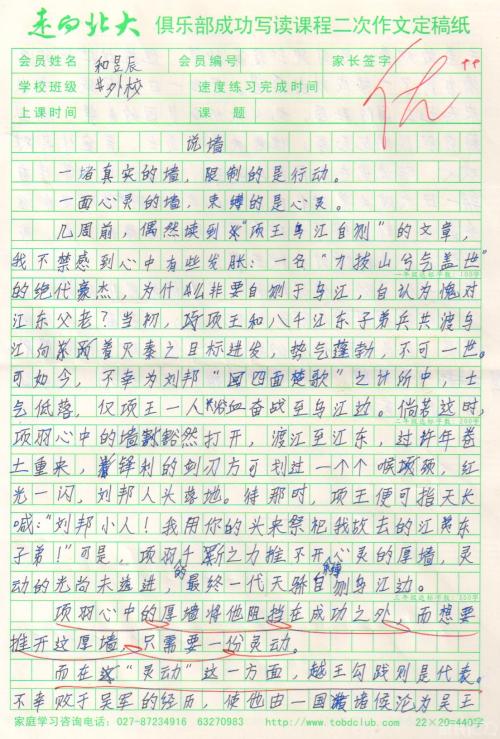 走向北大 俱乐部成功写读课程二次作文定稿纸
会员姓名 和昱辰 会员编号 家长签字
学校班级 外校 速度练习完成时间
上课时间 课题
优 ++
说墙
一堵真实的墙,限制的是行动。
一面心灵的墙,束缚的是心灵。
几周前,偶然读到“项王乌江自刎”的文章,
我不禁感到心中有些发胀:一名“力拔山兮气盖世”
一年级达标字数:100字
的绝代豪杰,为什么非要自刎于乌江,自认为愧对
江东父老?当初,项王和八千江东子弟兵共渡乌
江向着灭秦之目标进发,势气蓬勃,不可一世。
可如今,不幸为刘邦“四面楚歌”之计所中,士
气低落,仅项王一人浴血奋战至乌江边。倘若这时,
二年级达标字数:200字
项羽心中的墙豁然打开,渡江至江东,过许年卷
土重来,锋利的剑刃方可划过一个个喉颈,红
光一闪,刘邦人头落地。待那时,项王便可指天长
喊:“刘邦小人!我用你的头来祭祀我故去的江东
子弟!”可是,项羽千斤之力推不开心灵的厚墙,灵
动的光尚未透进,最终一代天骄自刎乌江边。
三年级达标字数:300字
项羽心中的厚墙将他阻挡在成功之外,而想要
推开这厚墙,只需要一份灵动。
而在“灵动”这一方面,越王勾践则是代表。
不幸败于吴军的经历,使他由一国诸侯沦为吴王
家庭学习咨询电话:027-87234916 63270983 http://www.tobdclub.com 22×20=440字